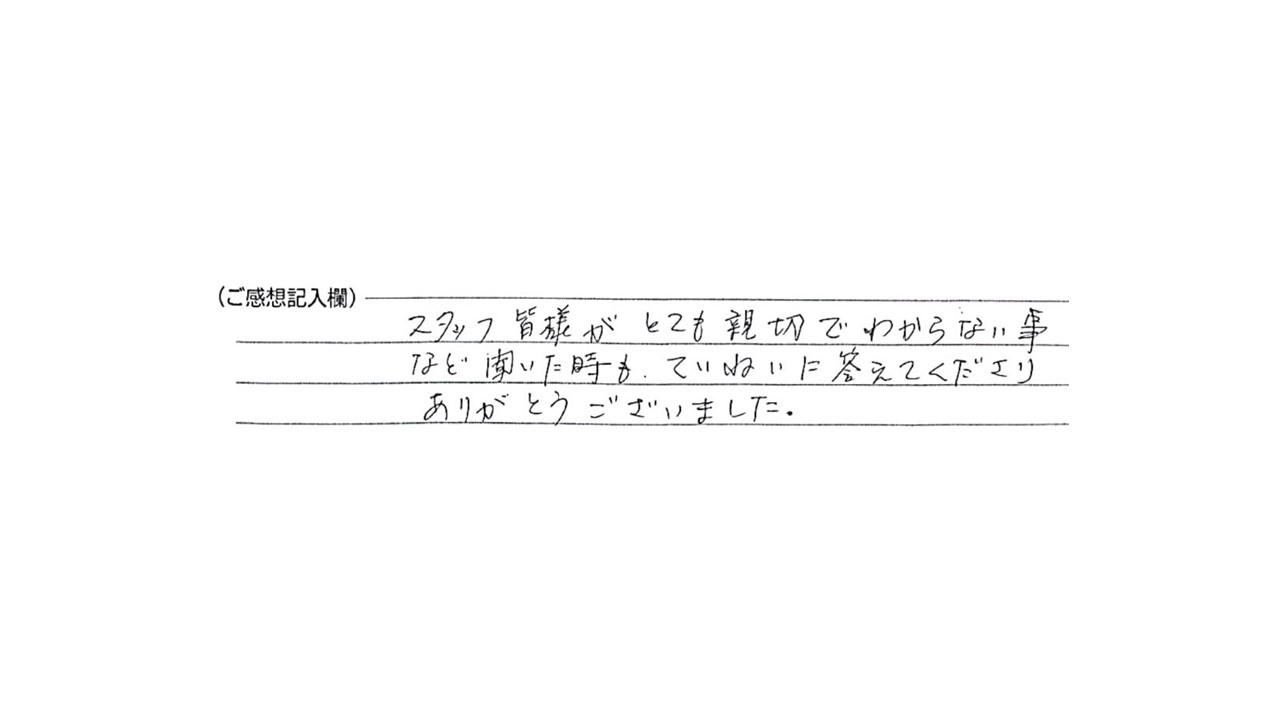 (ご感想記入欄)
スタッフ皆様がとても親切でわからない事
など聞いた時も、ていねいに答えてくださり
ありがとうございました。